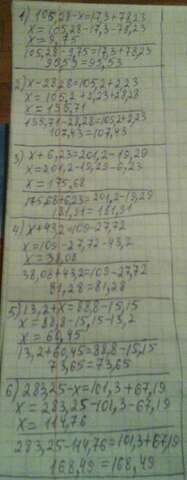 1) 105,28-x=17,3+78,23
x=105,28-17,3-78,23
x=9,75
105,28-9,75=17,3+78,23
95,53=95,53
2) x-28,28=105,2+2,23
x=105,2+2,23+28,28
x=135,71
135,71-28,28=105,2+2,23
107,43=107,43
3) x+6,23=201,2-19,29
x=201,2-19,29-6,23
x=175,68
175,68+6,23=201,2-19,29
181,91=181,91
4) x+43,2=109-27,72
x=109-27,72-43,2
x=38,08
38,08+43,2=109-27,72
81,28=81,28
5) 13,2+x=88,8-15,15
x=88,8-15,15-13,2
x=60,45
13,2+60,45=88,8-15,15
73,65=73,65
6) 283,25-x=101,3+67,19
x=283,25-101,3-67,19
x=114,76
283,25-114,76=101,3+67,19
168,49=168,49